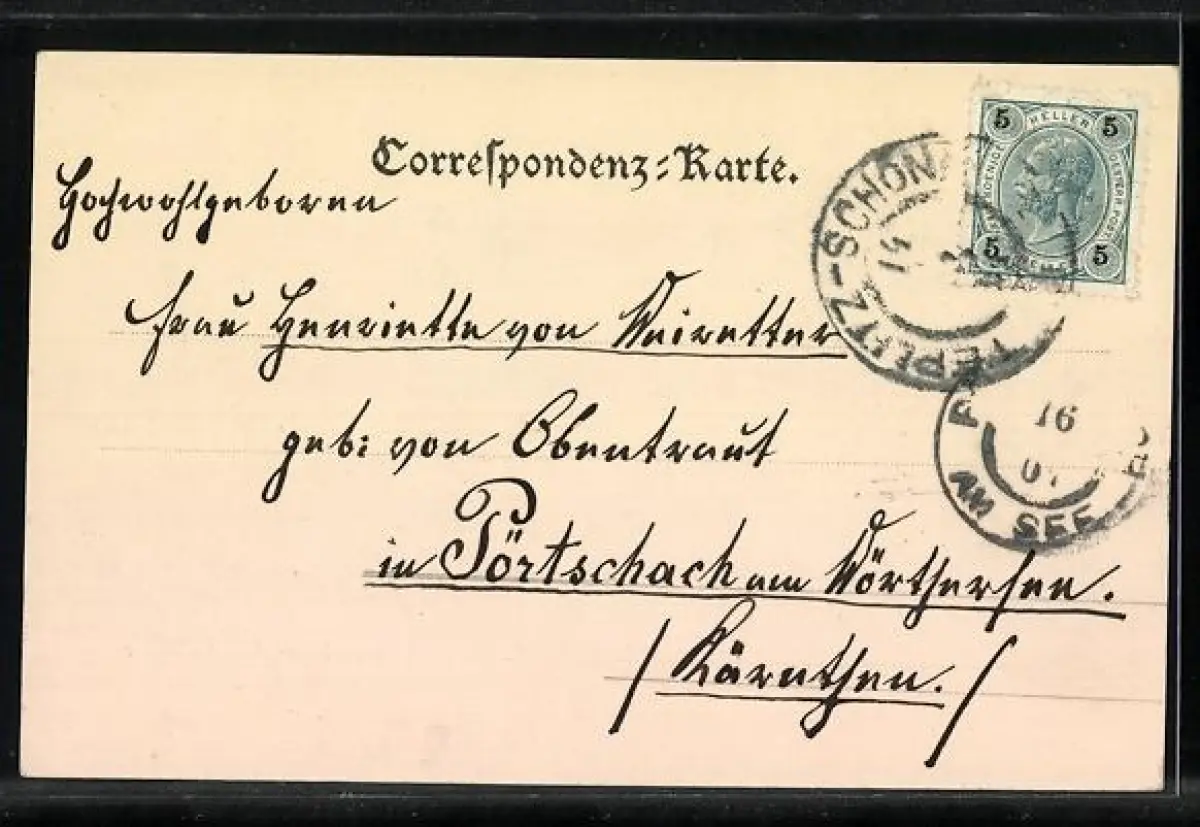 Correspondenz-Karte.
5 HELLER 5
5 5
TEPLITZ-SCHÖNA
14
Hochwohlgeboren
Frau Henriette von Weiretter
geb: von Obentraut
in Pörtschach am Wörthersee.
/ Kärnthen. /
16
AM SEE